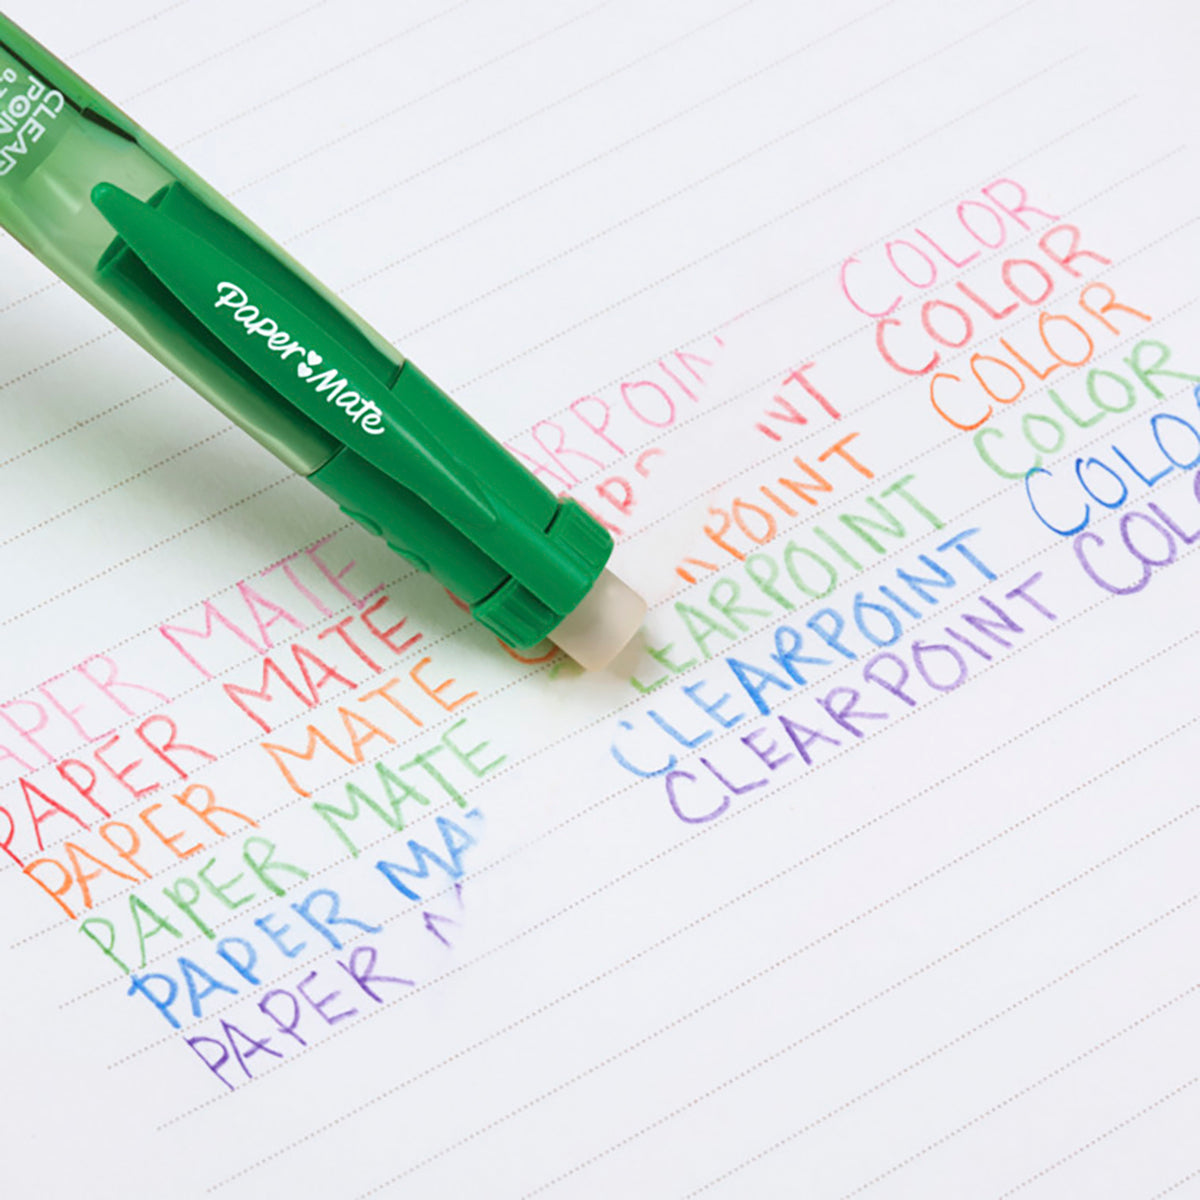 CLEAR
POINT
0.7
Paper Mate
APER MATE EARPOIN COLOR
PAPER MATE ARP NT COLOR
PAPER MATE C POINT COLOR
PAPER MATE LEARPOINT COLOR
PAPER MA CLEARPOINT COLO
PAPER CLEARPOINT COL